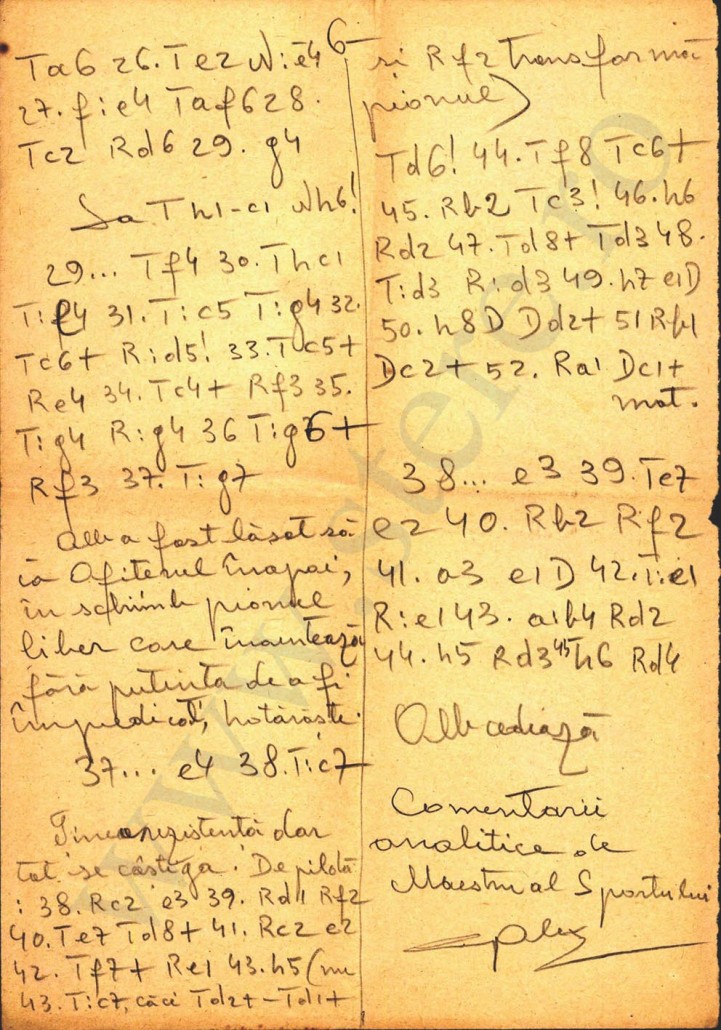 6
Ta6 26. Te2 N:e4
27. f:e4 Taf6 28.
Tc2 Rd6 29. g4
La Th1-c1, Nh6!
29... Tf4 30. Thc1
T:e4 31. T:c5 T:g4 32.
Tc6+ R:d5! 33. Tc5+
Re4 34. Tc4+ Rf3 35.
T:g4 R:g4 36 T:g6+
Rf3 37. T:g7
Alb a fost lăsat să
ia Ofiterul înapoi,
în schimb pionul
liber care înaintează
fără putinta de a fi
împedicat, hotărăște.
37... e4 38. T:c7
rezistentă dar
tot se câstiga. De pildă
: 38. Rc2 e3 39. Rd1 Rf2
40. Te7 Td8+ 41. Rc2 e2
42. Tf7+ Re1 43. h5 (nu
43. T:c7, căci Td2+ - Td1+
si Rf2 transformă
pionul)
Td6! 44. Tf8 Tc6+
45. Rb2 Tc3! 46. h6
Rd2 47. Td8+ Td3 48.
T:d3 R:d3 49. h7 e1D
50. h8D Dd2+ 51 Rb1
Dc2+ 52. Ra1 Dc1+
mat.
38... e3 39. Te7
e2 40. Rb2 Rf2
41. a3 e1D 42. T:e1
R:e1 43. a:b4 Rd2
44. h5 Rd3 45 h6 Rd4
Alb cedează
Comentarii
analitice de
Maestru al Sportului
www.stere.ro